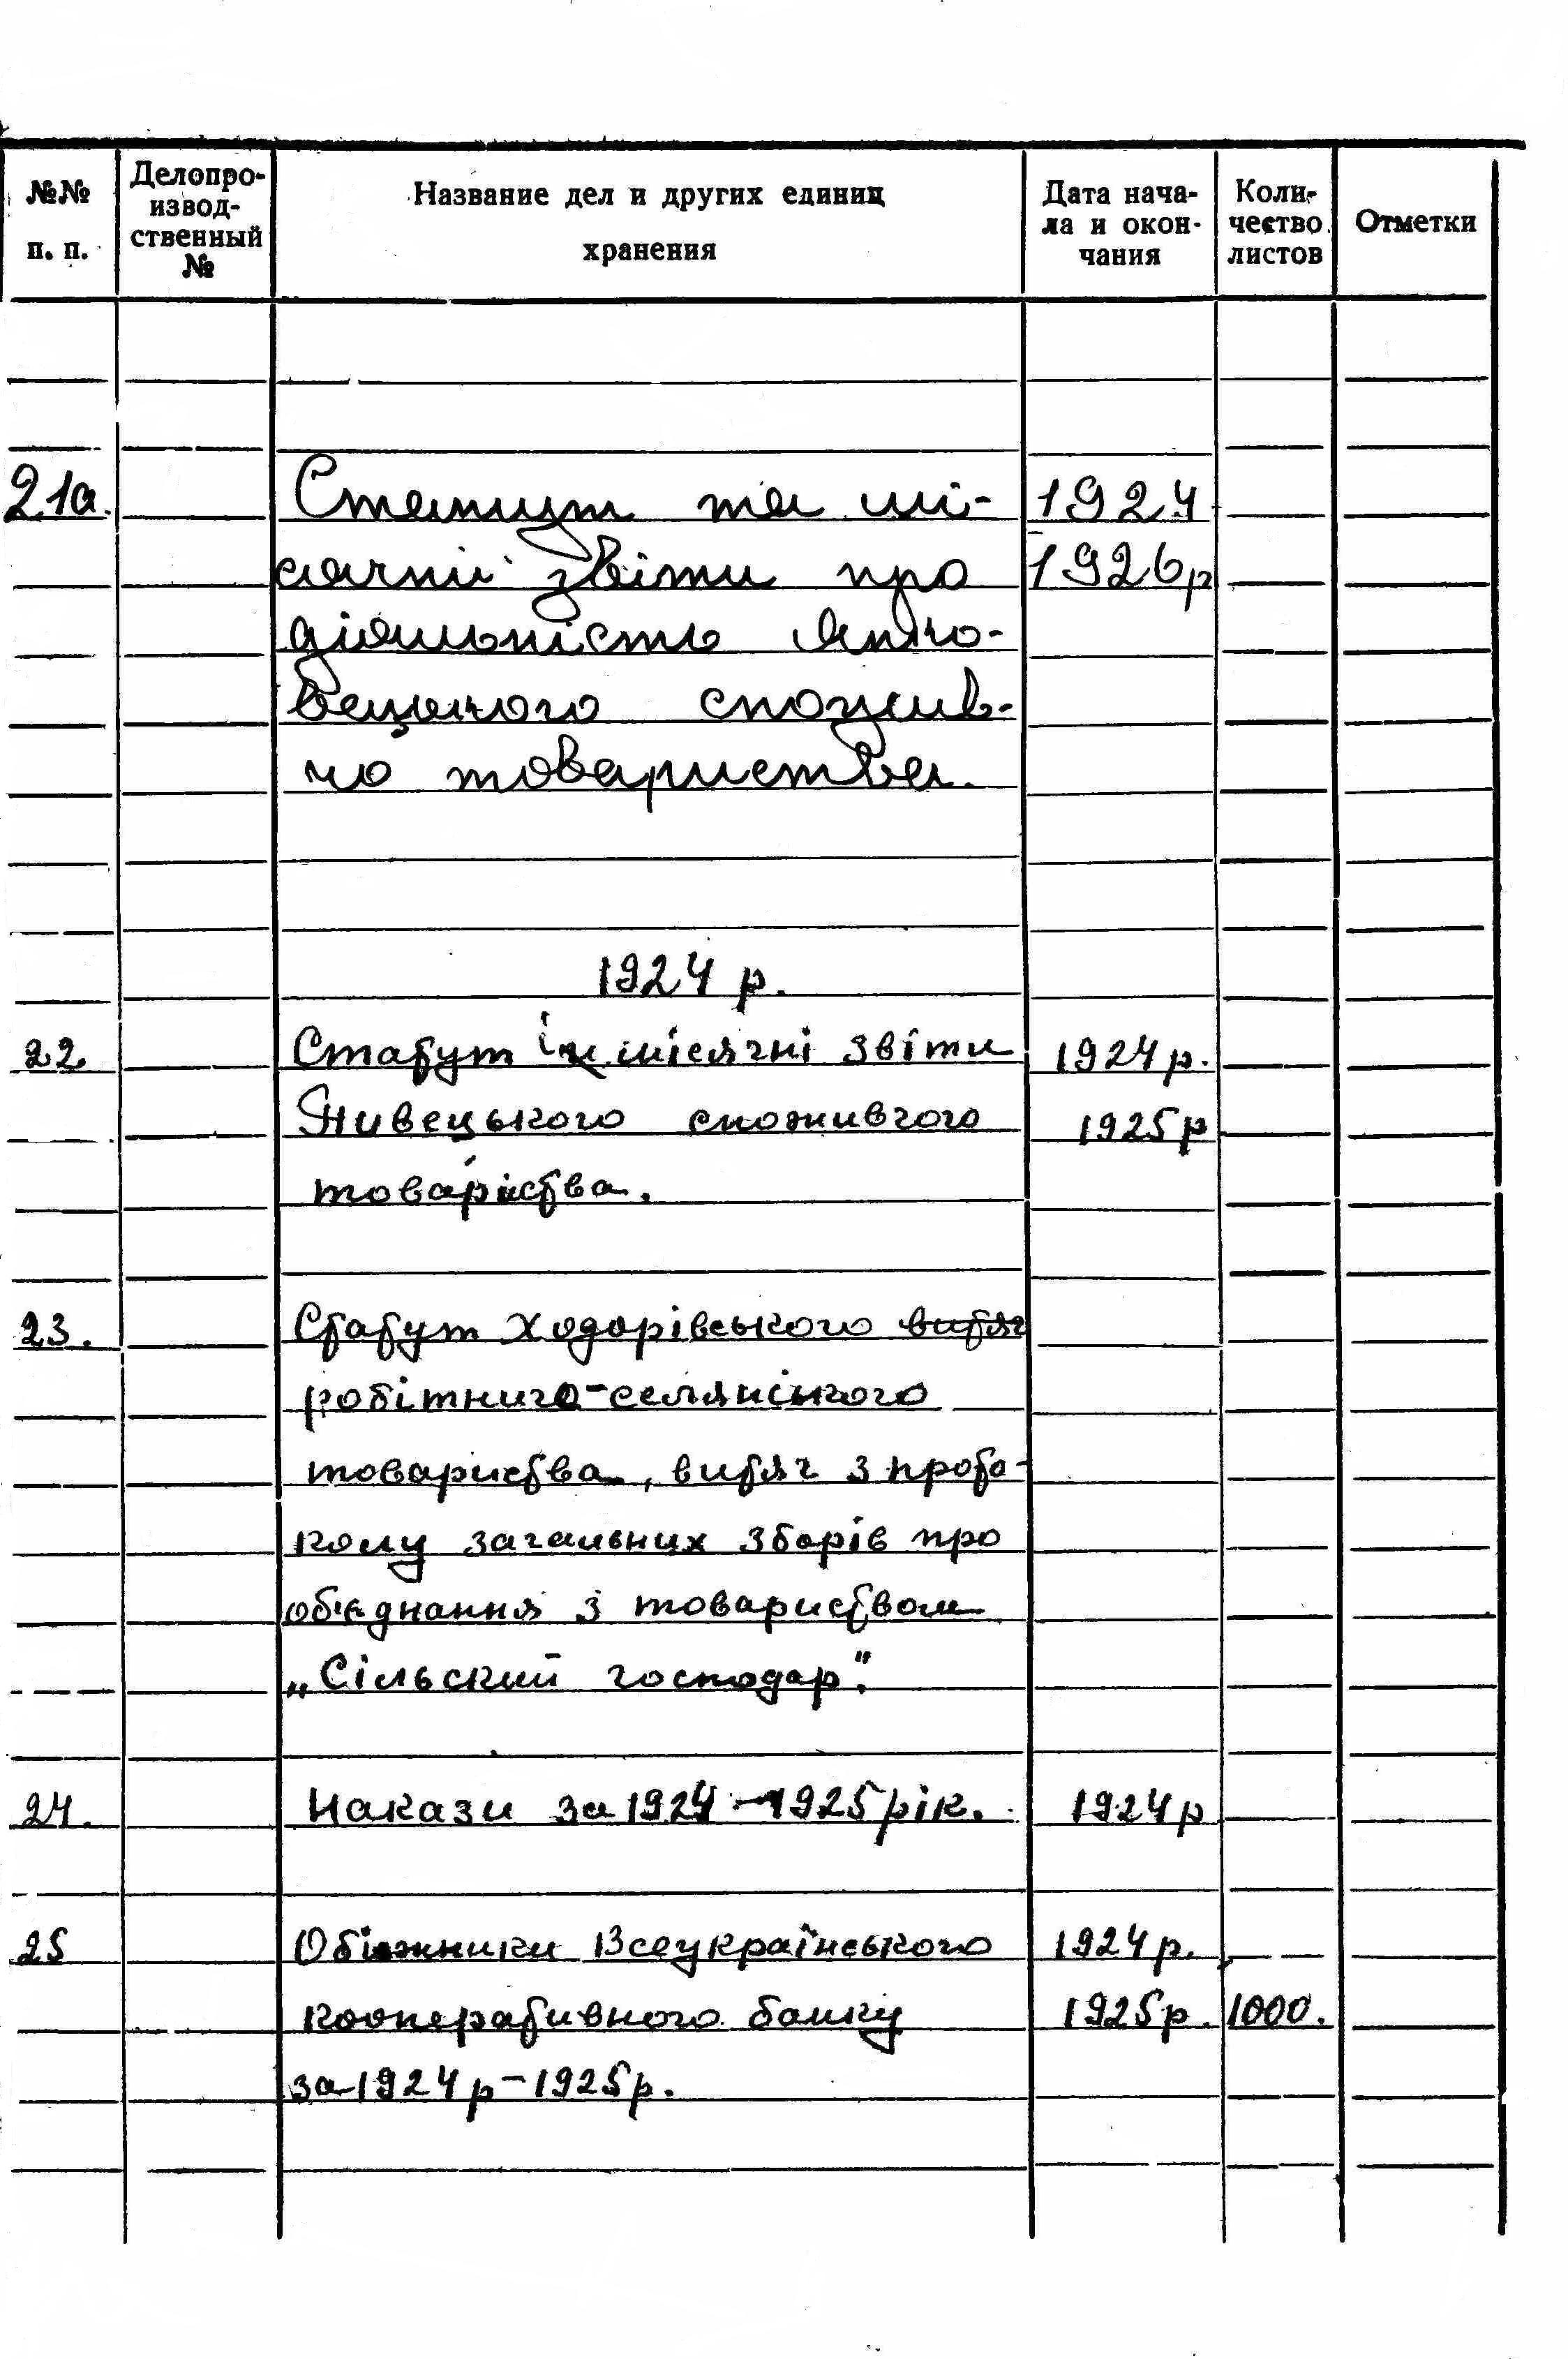 №№ п. п.
Делопро-
извод-
ственный
№
Название дел и других единиц
хранения
Дата нача-
ла и окон-
чания
Коли-
чество
листов
Отметки
21а. Статут та мі- 1924
сячні звіти про 1926р
діяльність
вецького спожив-
чо товариства.
1924 р.
22. Статут і місячні звіти 1924р.
споживчого 1925р
товариства.
23. Статут Ходорівського витяг
робітничо-селянського
товариства, витяг з прото-
колу загальних зборів про
об'єднання з товариством
„Сільский господар".
24. Накази за 1924-1925 рік. 1924р
25 Обіжники Всеукраїнського 1924р.
кооперативного банку 1925р. 1000.
за 1924р-1925р.